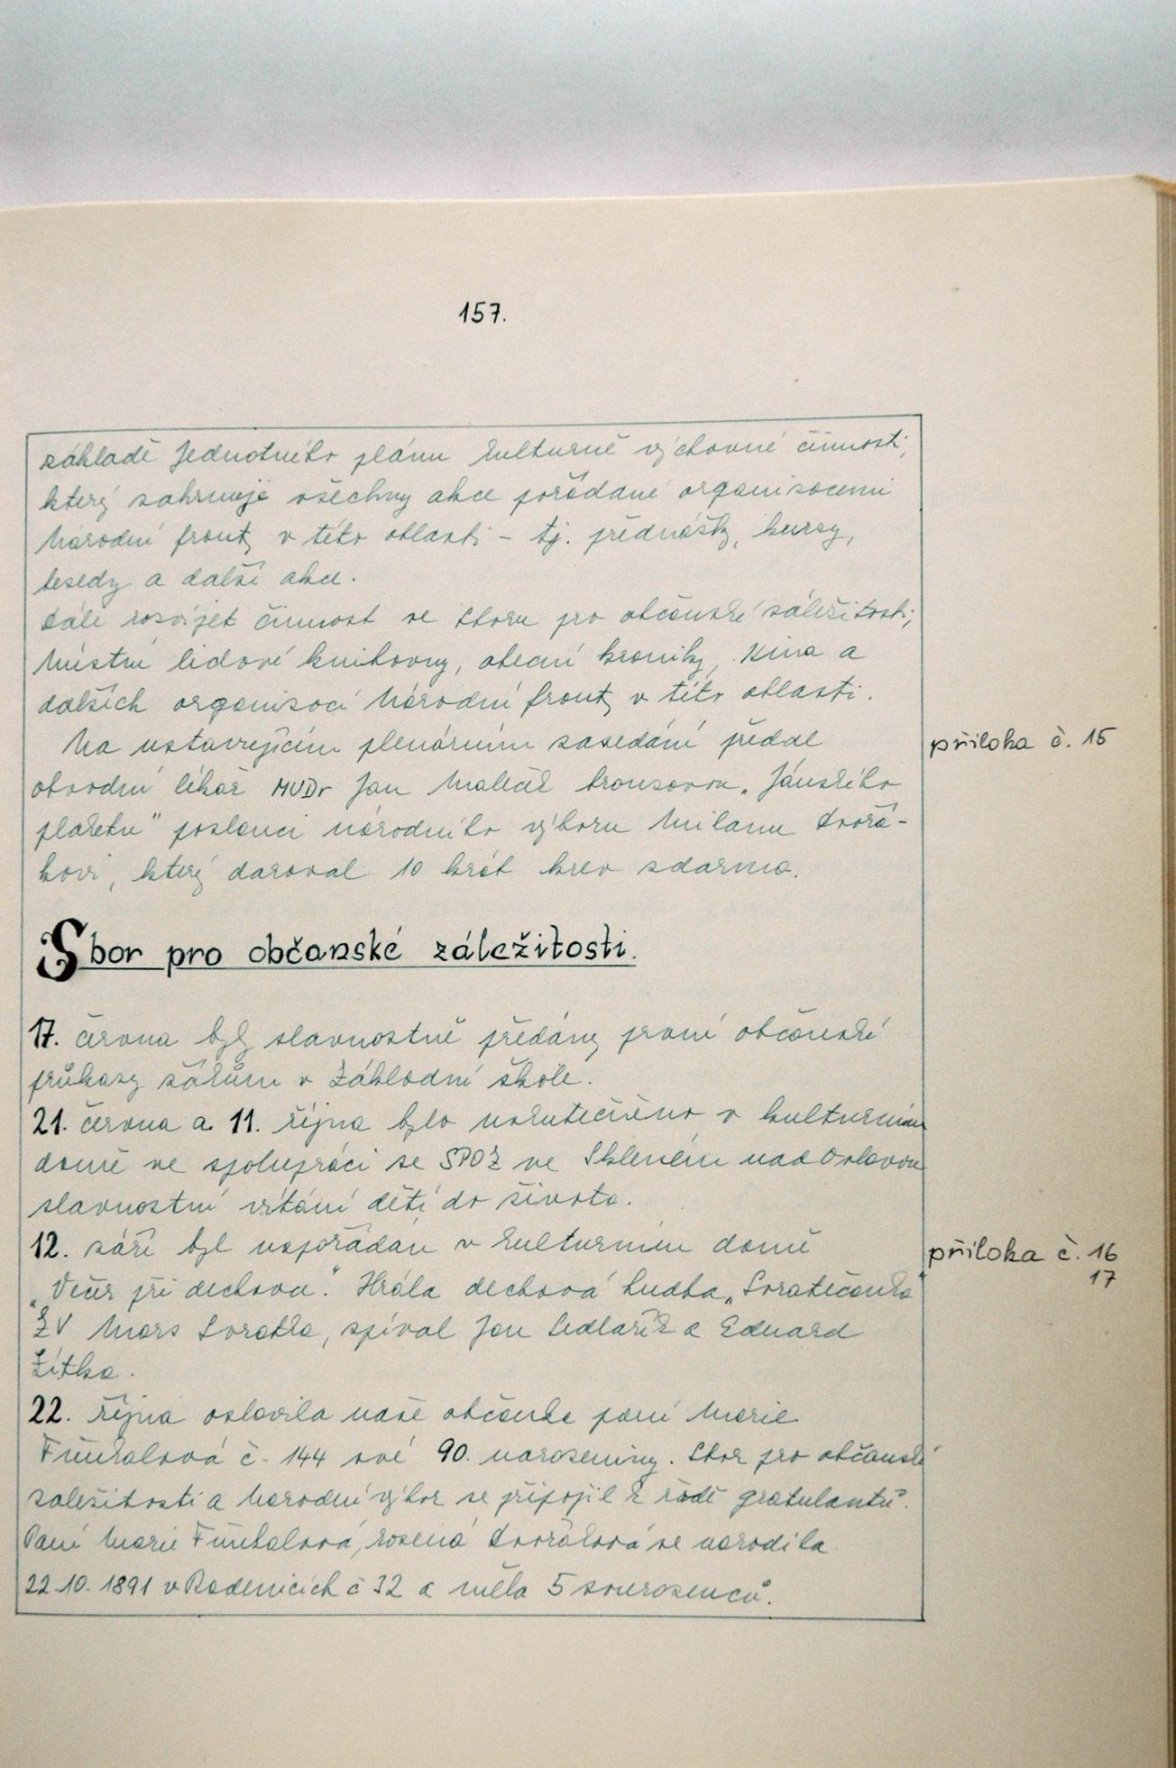 157.
základě Jednotného plánu kulturně výchovné činnosti,
který zahrnuje všechny akce pořádané organisacemi
Národní fronty v této oblasti - tj. přednášky, kursy,
besedy a další akce.
Dále rozvíjet činnost ve Sboru pro občanské záležitosti,
Místní lidové knihovny, obecní kroniky, Kina a
dalších organisací Národní fronty v této oblasti.
Na ustavujícím plenárním zasedání předal
příloha č. 15
obvodní lékař MUDr Jan Maleček bronzovou „Jánského
plaketu" poslanci národního výboru Milanu Dvořá-
kovi, který daroval 10 krát krev zdarma.
Sbor pro občanské záležitosti.
17. června byly slavnostně předány první občanské
průkazy žákům v Základní škole.
21. června a 11. října bylo uskutečněno v kulturním
domě ve spolupráci se SPOZ ve Skleném nad Oslavou
slavnostní vítání dětí do života.
12. září byl uspořádán v kulturním domě
příloha č. 16
17
„Večer při dechovce." Hrála dechová hudba „Svratečanka"
ZV Mars Svratka, zpíval Jan Sedlařík a Eduard
Žítka.
22. října oslavila naše občanka paní Marie
č. 144 své 90. narozeniny. Sbor pro občanské
záležitosti a Národní výbor se připojil k řadě gratulantů.
Paní Marie rozená Dvořáková se narodila
22.10. 1891 v Radenicích č 32 a měla 5 sourozenců.